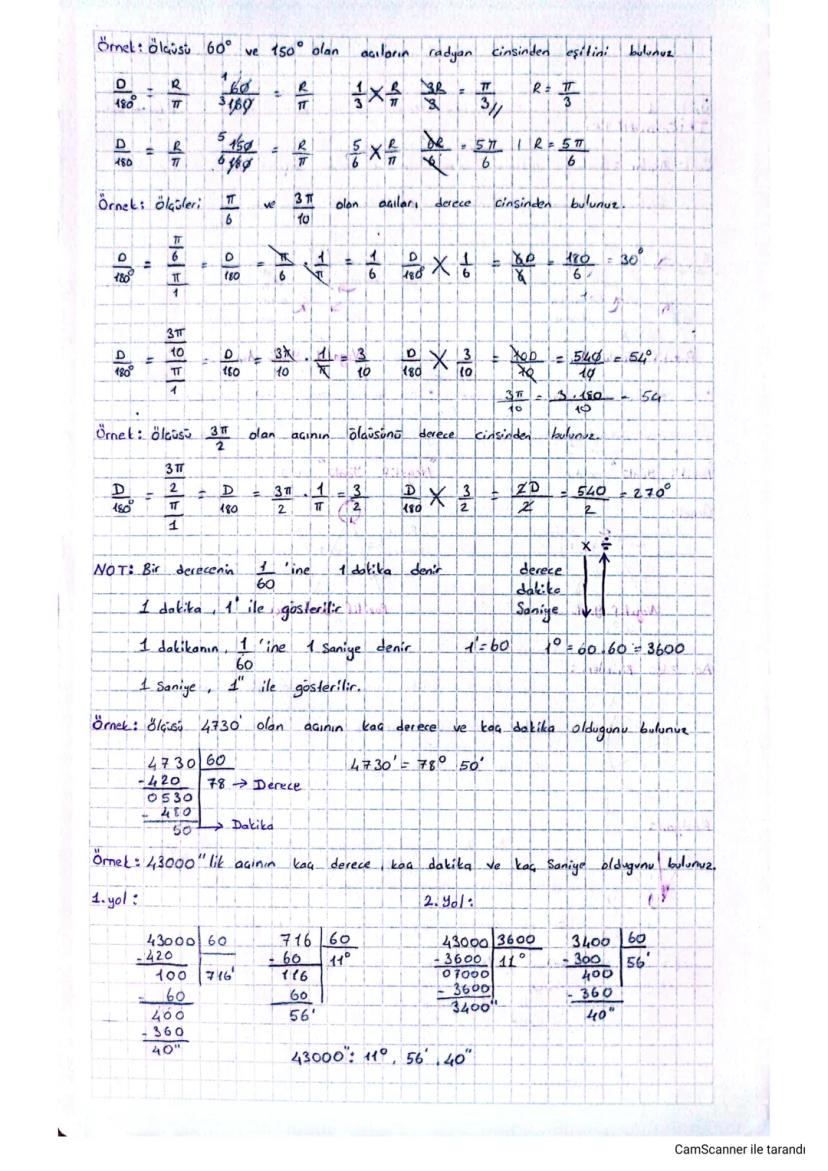 Örnek: ölçüsü 60° ve 150° olan açıların radyan cinsinden eşitini bulunuz
D/180° = R/π 60/180 = R/π 1/3 × R/π 3R/3 = π/3 R = π/3
D/180 = R/π 150/180 = R/π 5/6 × R/π 6R/6 = 5π/6 | R = 5π/6
Örnek: ölçüleri π/6 ve 3π/10 olan açıları derece cinsinden bulunuz.
D/180° = (π/6)/(π/1) = D/180 = π/6 . 1/π = 1/6 D/180° × 1/6 = 6D/6 = 180/6 = 30°
D/180° = (3π/10)/(π/1) = D/180 = 3π/10 . 1/π = 3/10 D/180 × 3/10 = 10D/10 = 540/10 = 54°
3π/10 = 3.180/10 = 54
Örnek: ölçüsü 3π/2 olan açının ölçüsünü derece cinsinden bulunuz.
D/180° = (3π/2)/(π/1) = D/180 = 3π/2 . 1/π = 3/2 D/180 × 3/2 = 2D/2 = 540/2 = 270°
x ÷
NOT: Bir derecenin 1/60 'ine 1 dakika denir derece
dakika
1 dakika, 1' ile gösterilir Saniye
1 dakikanın, 1/60 'ine 1 saniye denir 1' = 60 1° = 60.60 = 3600
1 Saniye, 1" ile gösterilir.
Örnek: ölçüsü 4730' olan açının kaç derece ve kaç dakika oldugunu bulunuz
4730 | 60 4730' = 78° 50'
-420 78 → Derece
0530
- 480
50 → Dakika
Örnek: 43000" lik açının kaç derece, kaç dakika ve kaç Saniye oldugunu bulunuz.
1. yol: 2. Yol:
43000 | 60 716 | 60 43000 | 3600 3400 | 60
-420 - 60 11° -3600 11° -300 56'
100 716' 116 07000 400
- 60 60 - 3600 - 360
400 56' 3400" 40"
-360
40"
43000": 11°, 56', 40"
CamScanner ile tarandı